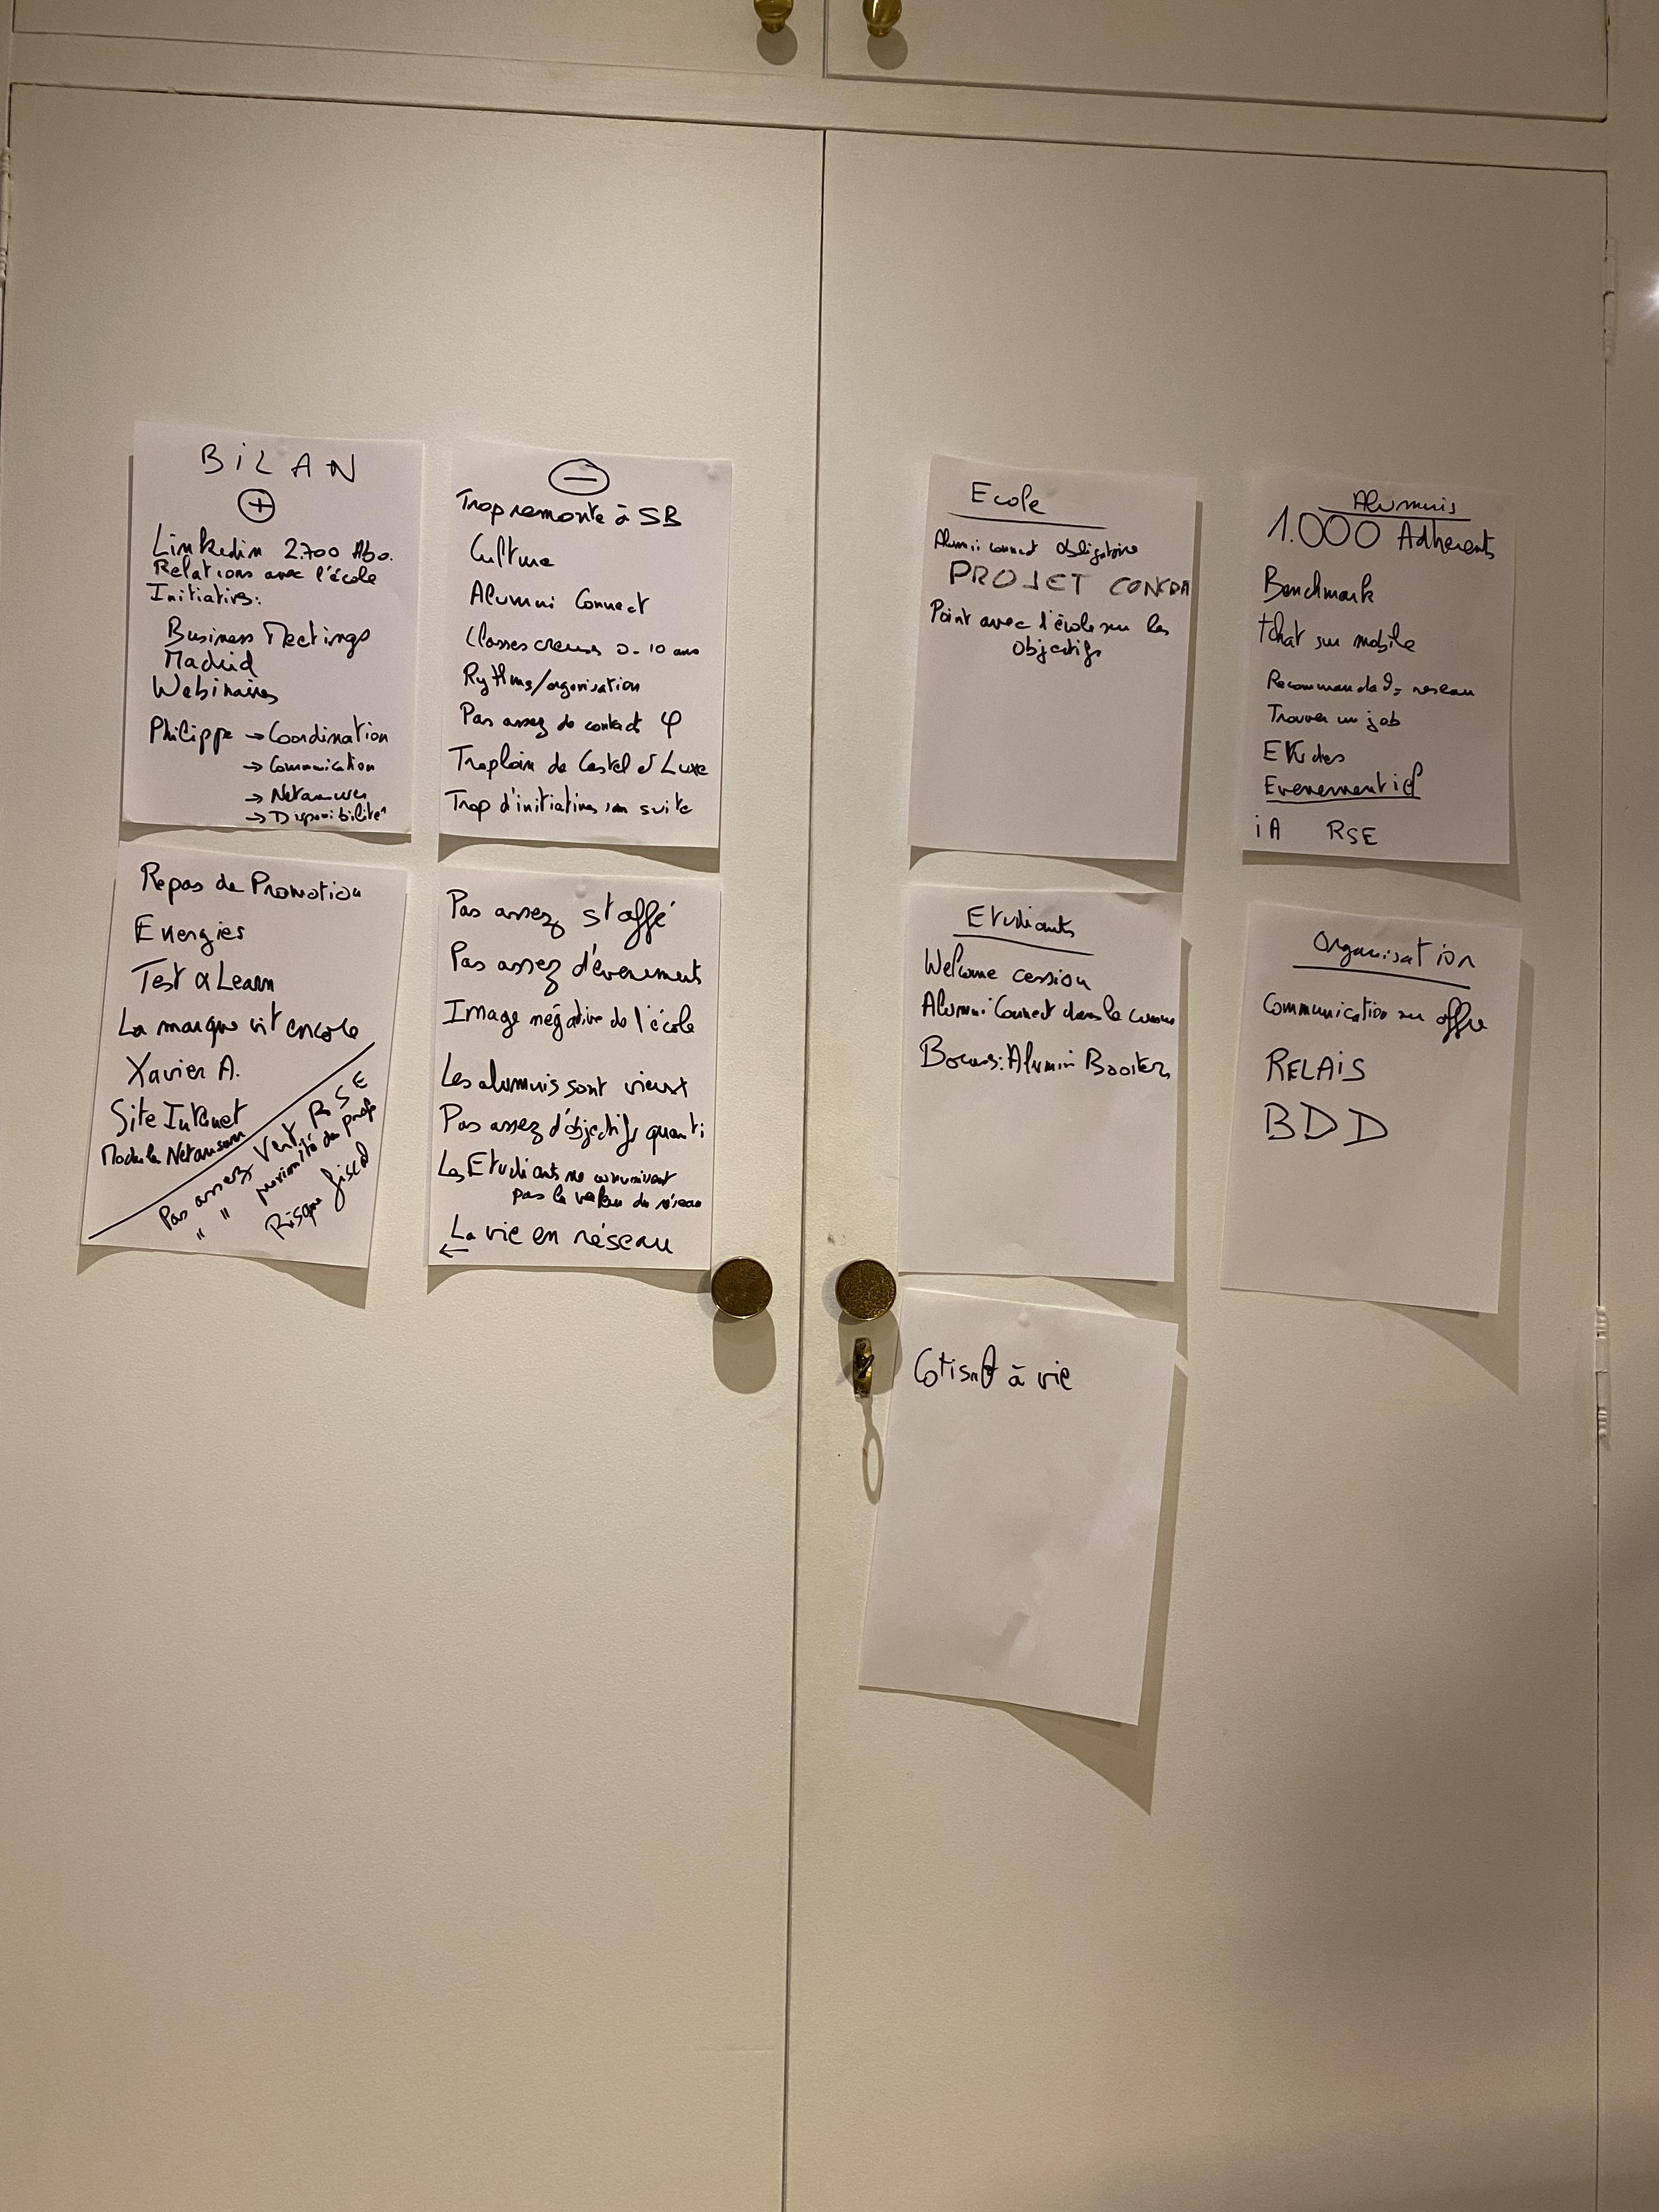 BiLAN
+
Linkedin 2.700 Abo.
Relations avec l'école
Initiatives:
Business Meetings
Madrid
Webinaires
Philippe → Coordination
→ Communication
→ 
→ Disponibilité
Repas de Promotion
Energies
Test & Learn
La marque vit encore
Xavier A.
Site Internet
Module
Pas assez Vert, RSE
" " proximité du prof
Risque fiscal
−
Trop remonte à SB
Culture
Alumni Connect
Classes creuses 0-10 ans
Rythme/organisation
Pas assez de contact φ
Trop loin de Castel et Luxe
Trop d'initiatives san suite
Pas assez staffé
Pas assez d'évenements
Image négative de l'école
Les alumnis sont vieux
Pas assez d'objectifs quanti
Les Etudiants ne connaissent
pas la valeur du réseau
La vie en réseau
←
Ecole
Alumni connect obligatoire
PROJET
Point avec l'école sur les
Objectifs
Etudiants
Welcome cession
Alumni Connect dans le cursus
Alumni Booster
Cotisat° à vie
Alumnis
1.000 Adherents
Benchmark
tchat sur mobile
reseau
Trouver un job
Etudes
Evenementiel
iA RSE
Organisation
Communication sur offre
RELAIS
BDD